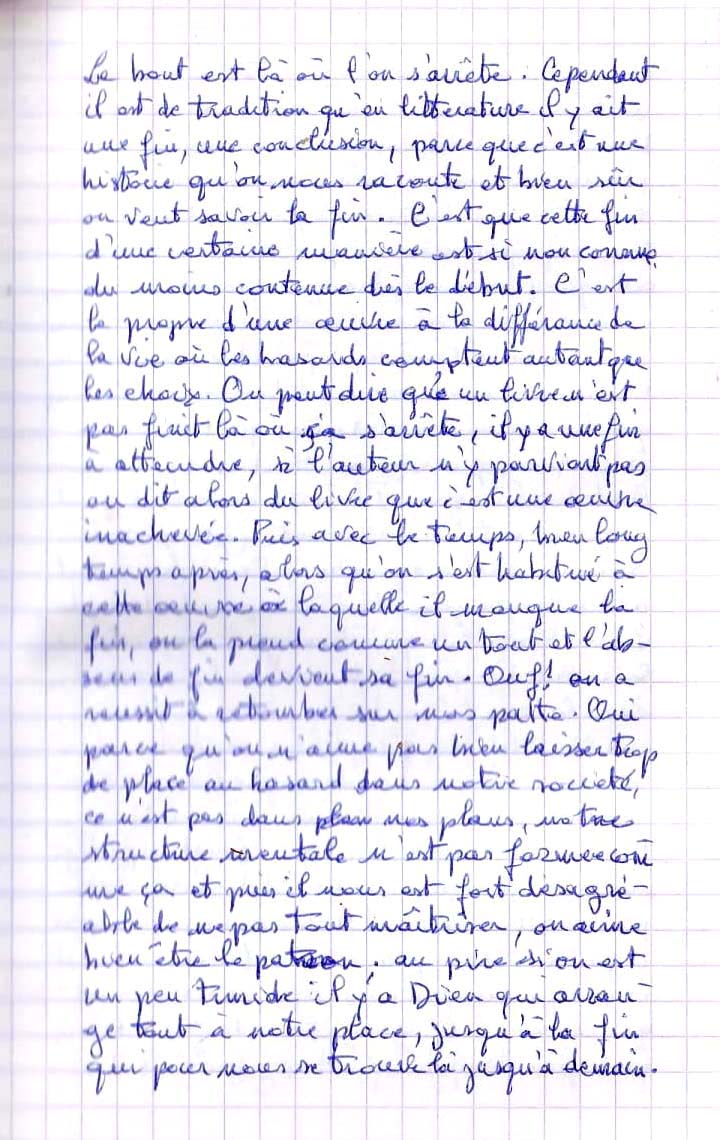 Le bout est là où l'on s'arrête. Cependant
il est de tradition qu'en littérature il y ait
une fin, une conclusion, parce que c'est une
histoire qu'on nous raconte et bien sûr
on veut savoir la fin. C'est que cette fin
d'une certaine manière est si non connue
du moins contenue dès le début. C'est
le propre d'une œuvre à la différance de
la vie où les hasards comptent autant que
les choix. On peut dire qu'un livre n'est
pas finit là où ça s'arrête, il y a une fin
à attendre, si l'auteur n'y parvient pas
on dit alors du livre que c'est une œuvre
inachevée. Puis avec le temps, bien long
temps après, alors qu'on s'est habitué à
cette œuvre à laquelle il manque la
fin, on la prend comme un tout et l'ab-
sence de fin devient sa fin. Ouf! on a
reussit à retomber sur nos patte. Oui
parce qu'on n'aime pas bien laisser trop
de place au hasard dans notre société,
ce n'est pas dans plan nos plans, notre
structure mentale n'est pas formée com
me ça et puis il nous est fort désagré-
able de ne pas tout maîtriser, on aime
bien être le patron, au pire si on est
un peu timide il y a Dieu qui arran-
ge tout à notre place, jusqu'à la fin
qui pour nous se trouve là jusqu'à demain.